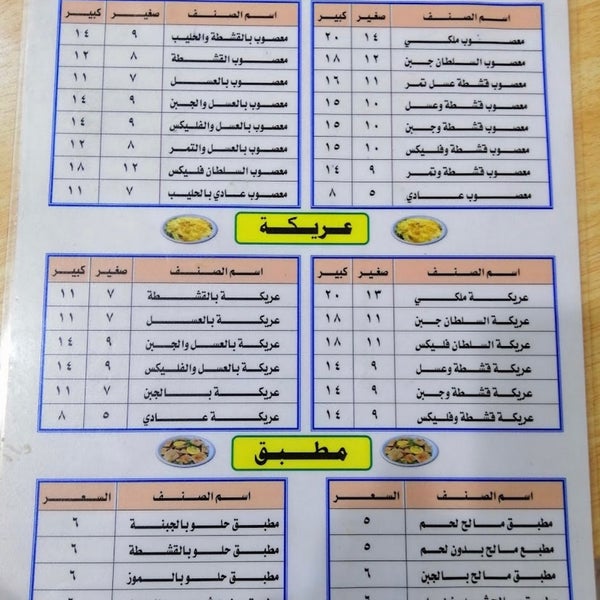 اسم الصنف صغير كبير
معصوب ملكي ١٤ ٢٠
معصوب السلطان جبن ١٢ ١٨
معصوب قشطة عسل تمر ١١ ١٦
معصوب قشطة وعسل ١٠ ١٥
معصوب قشطة وجبن ١٠ ١٥
معصوب قشطة وفليكس ١٠ ١٥
معصوب قشطة وتمر ٩ ١٤
معصوب عادي ٥ ٨
اسم الصنف صغير كبير
معصوب بالقشطة والحليب ٩ ١٤
معصوب القشطة ٨ ١٢
معصوب بالعسل ٧ ١١
معصوب بالعسل والجبن ٩ ١٤
معصوب بالعسل والفليكس ٩ ١٤
معصوب بالعسل والتمر ٨ ١٢
معصوب السلطان فليكس ١٢ ١٨
معصوب عادي بالحليب ٧ ١١
عريكة
اسم الصنف صغير كبير
عريكة ملكي ١٣ ٢٠
عريكة السلطان جبن ١١ ١٨
عريكة السلطان فليكس ١١ ١٨
عريكة قشطة وعسل ٩ ١٤
عريكة قشطة وجبن ٩ ١٤
عريكة قشطة وفليكس ٩ ١٤
اسم الصنف صغير كبير
عريكة بالقشطة ٧ ١١
عريكة بالعسل ٧ ١١
عريكة بالعسل والجبن ٩ ١٤
عريكة بالعسل والفليكس ٩ ١٤
عريكة بالجبن ٧ ١١
عريكة عادي ٥ ٨
مطبق
اسم الصنف السعر
مطبق مالح لحم ٥
مطبع مالح بدون لحم ٥
مطبق مالح بالجبن ٦
اسم الصنف السعر
مطبق حلو بالجبنة ٦
مطبق حلو بالقشطة ٦
مطبق حلو بالموز ٦